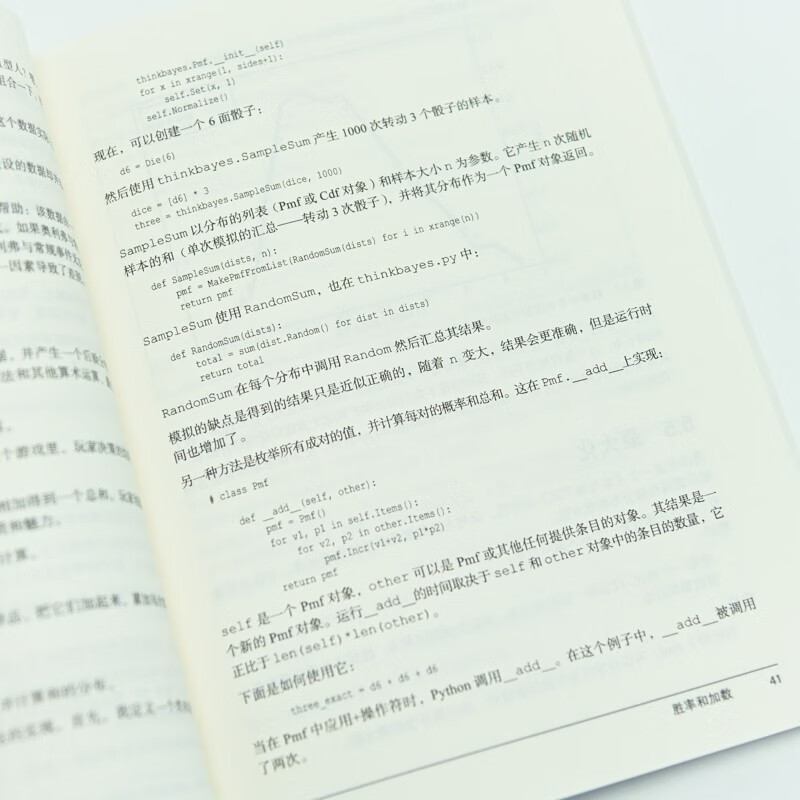 型人?考
组合一下,
这个数据实
设的数据却
帮助:该数据
。如果奥利弗
利弗与常规事件
因素导致了
据,并产生一个后
法和其他算术运算
个游戏里,玩家
相加得到一个总和,玩
质和魅力。
计算。
把它们加起来,
并计算和的分布。
thinkbayes.Pmf.__init__(self)
for x in xrange(1, sides+1):
self.Set(x, 1)
self.Normalize()
现在,可以创建一个 6 面骰子:
d6 = Die(6)
然后使用 thinkbayes.SampleSum 产生 1000 次转动 3 个骰子的样本。
dice = [d6] * 3
three = thinkbayes.SampleSum(dice, 1000)
SampleSum 以分布的列表(Pmf 或 Cdf 对象)和样本大小 n 为参数。它产生 n 次随机
样本的和(单次模拟的汇总——转动 3 次骰子),并将其分布作为一个 Pmf 对象返回。
def SampleSum(dists, n):
pmf = MakePmfFromList(RandomSum(dists) for i in xrange(n))
return pmf
SampleSum 使用 RandomSum,也在 thinkbayes.py 中:
def RandomSum(dists):
total = sum(dist.Random() for dist in dists)
return total
RandomSum 在每个分布中调用 Random 然后汇总其结果。
模拟的缺点是得到的结果只是近似正确的,随着 n 变大,结果会更准确,但是运行时
间也增加了。
另一种方法是枚举所有成对的值,并计算每对的概率和总和。这在 Pmf.__add__上实现:
# class Pmf
def __add__(self, other):
pmf = Pmf()
for v1, p1 in self.Items():
for v2, p2 in other.Items():
pmf.Incr(v1+v2, p1*p2)
return pmf
self 是一个 Pmf 对象,other 可以是 Pmf 或其他任何提供条目的对象。其结果是一
个新的 Pmf 对象。运行__add__的时间取决于 self 和 other 对象中的条目的数量,它
正比于 len(self)*len(other)。
下面是如何使用它:
three_exact = d6 + d6 + d6
当在 Pmf 中应用+操作符时,Python 调用__add__。在这个例子中,__add__被调用
了两次。
胜率和加数 41